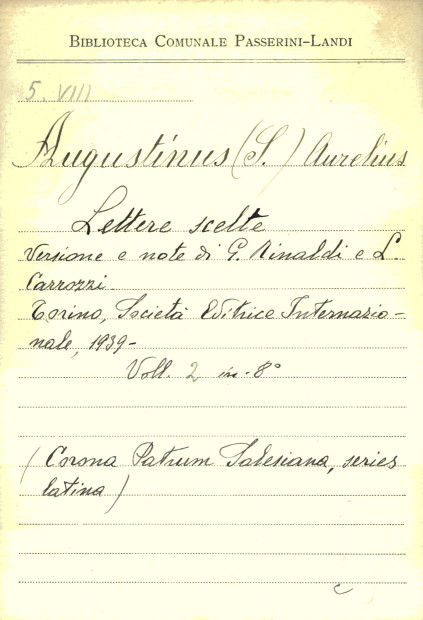 BIBLIOTECA COMUNALE PASSERINI-LANDI
5. VIII
Augustinus (S.) Aurelius
Lettere scelte
Versione e note di G. Rinaldi e L.
Carrozzi.
Torino, Società Editrice Internazio-
nale, 1939-
Voll. 2 in-8°
(Corona Patrum Salesiana, series
latina)
c